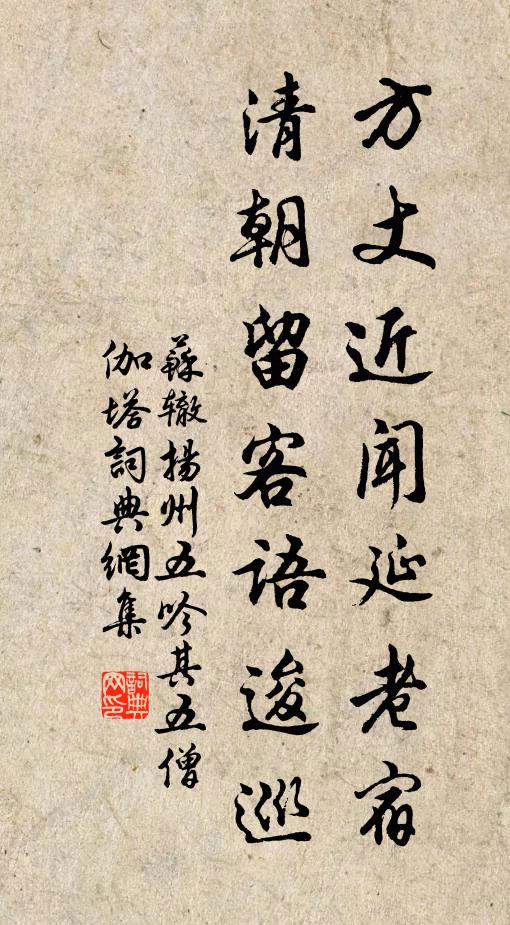 方丈近闻延老宿
清朝留客语逡巡
蘇辙揚州五吟其五僧
伽塔詞典網集
詞典網印